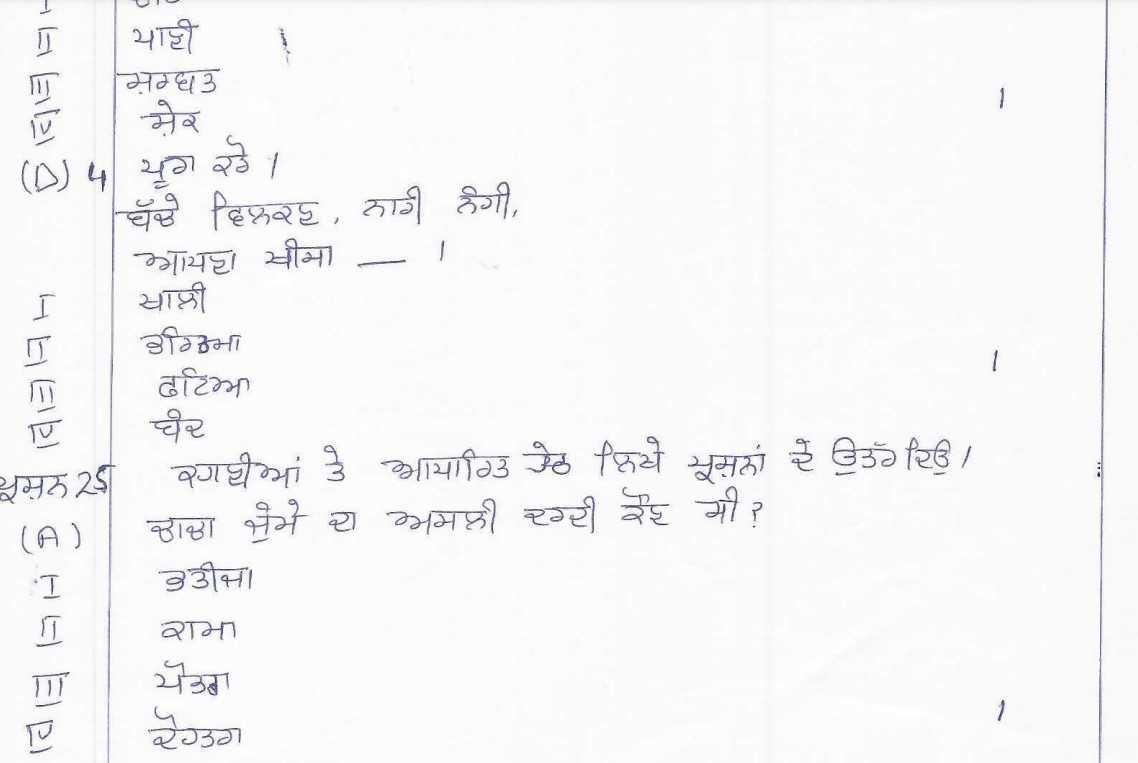 I
II ਪਾਣੀ
III ਸ਼ਰਬਤ 1
IV ਸ਼ੇਰ
(D) 4 ਪੂਰਾ ਕਰੋ ।
ਬੱਚੇ ਵਿਲਕਣ, ਨਾਰੀ ਨੰਗੀ,
ਆਪਣਾ ਖੀਸਾ — ।
I ਖਾਲੀ
II ਭਰਿਆ 1
III ਫਟਿਆ
IV ਬੰਦ
ਪ੍ਰਸ਼ਨ 25 ਕਹਾਣੀਆਂ ਤੇ ਆਧਾਰਿਤ ਹੇਠ ਲਿਖੇ ਪ੍ਰਸ਼ਨਾਂ ਦੇ ਉਤੱਰ ਦਿਓ ।
(A) ਚਾਚਾ ਜੁੰਮੇ ਦਾ ਅਸਲੀ ਦਰਦੀ ਕੌਣ ਸੀ ?
I ਭਤੀਜਾ
II ਕਾਮਾ
III ਪੋਤਰਾ 1
IV ਦੋਹਤਰਾ